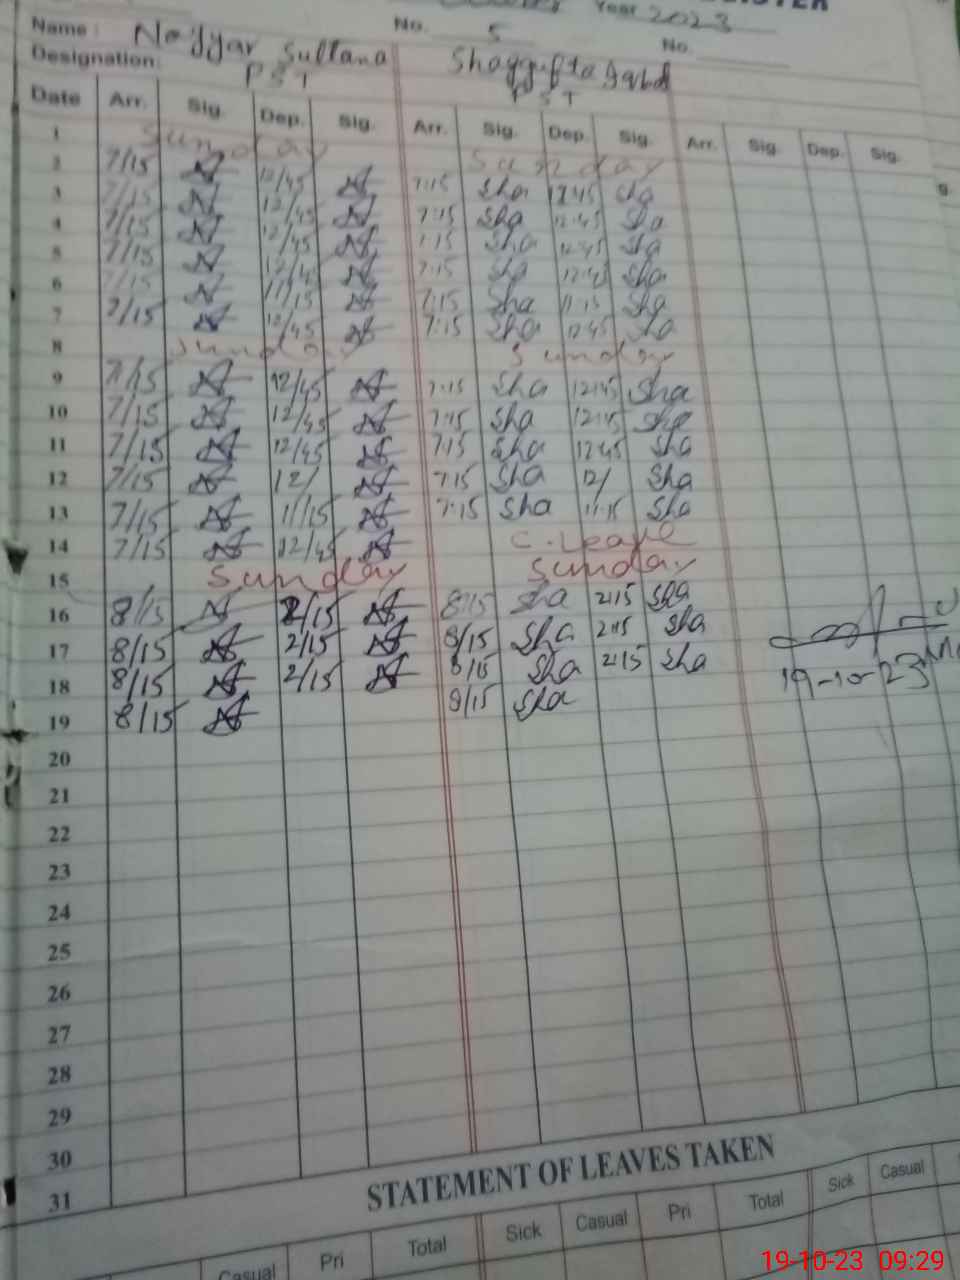 Year 2023
Name: Nayyar Sultana No. 5 Shagufta Iqbal No.
Designation: PST PST
Date Arr. Sig. Dep. Sig. Arr. Sig. Dep. Sig. Arr. Sig. Dep. Sig.
1 Sunday Sunday
2 7/15 12/45 7:15 Sha 12:45 Sha
3 7/15 12/45 7:15 Sha 12:45 Sha
4 7/15 12/45 7:15 Sha 12:45 Sha
5 7/15 12/45 7:15 Sha 12:45 Sha
6 7/15 11/15 7:15 Sha 11:15 Sha
7 7/15 12/45 7:15 Sha 12:45 Sha
8 Sunday Sunday
9 7/15 12/45 7:15 Sha 12:45 Sha
10 7/15 12/45 7:15 Sha 12:45 Sha
11 7/15 12/45 7:15 Sha 12:45 Sha
12 7/15 12/ 7:15 Sha 12/ Sha
13 7/15 11/15 7:15 Sha 11:15 Sha
14 7/15 12/45 C. Leave
15 Sunday Sunday
16 8/15 2/15 8/15 Sha 2:15 Sha
17 8/15 2/15 8/15 Sha 2:15 Sha
18 8/15 2/15 8/15 Sha 2:15 Sha
19-10-23
19 8/15 8/15 Sha
20
21
22
23
24
25
26
27
28
29
30
31
STATEMENT OF LEAVES TAKEN
Casual Pri Total Sick Casual Pri Total Sick Casual
19-10-23 09:29